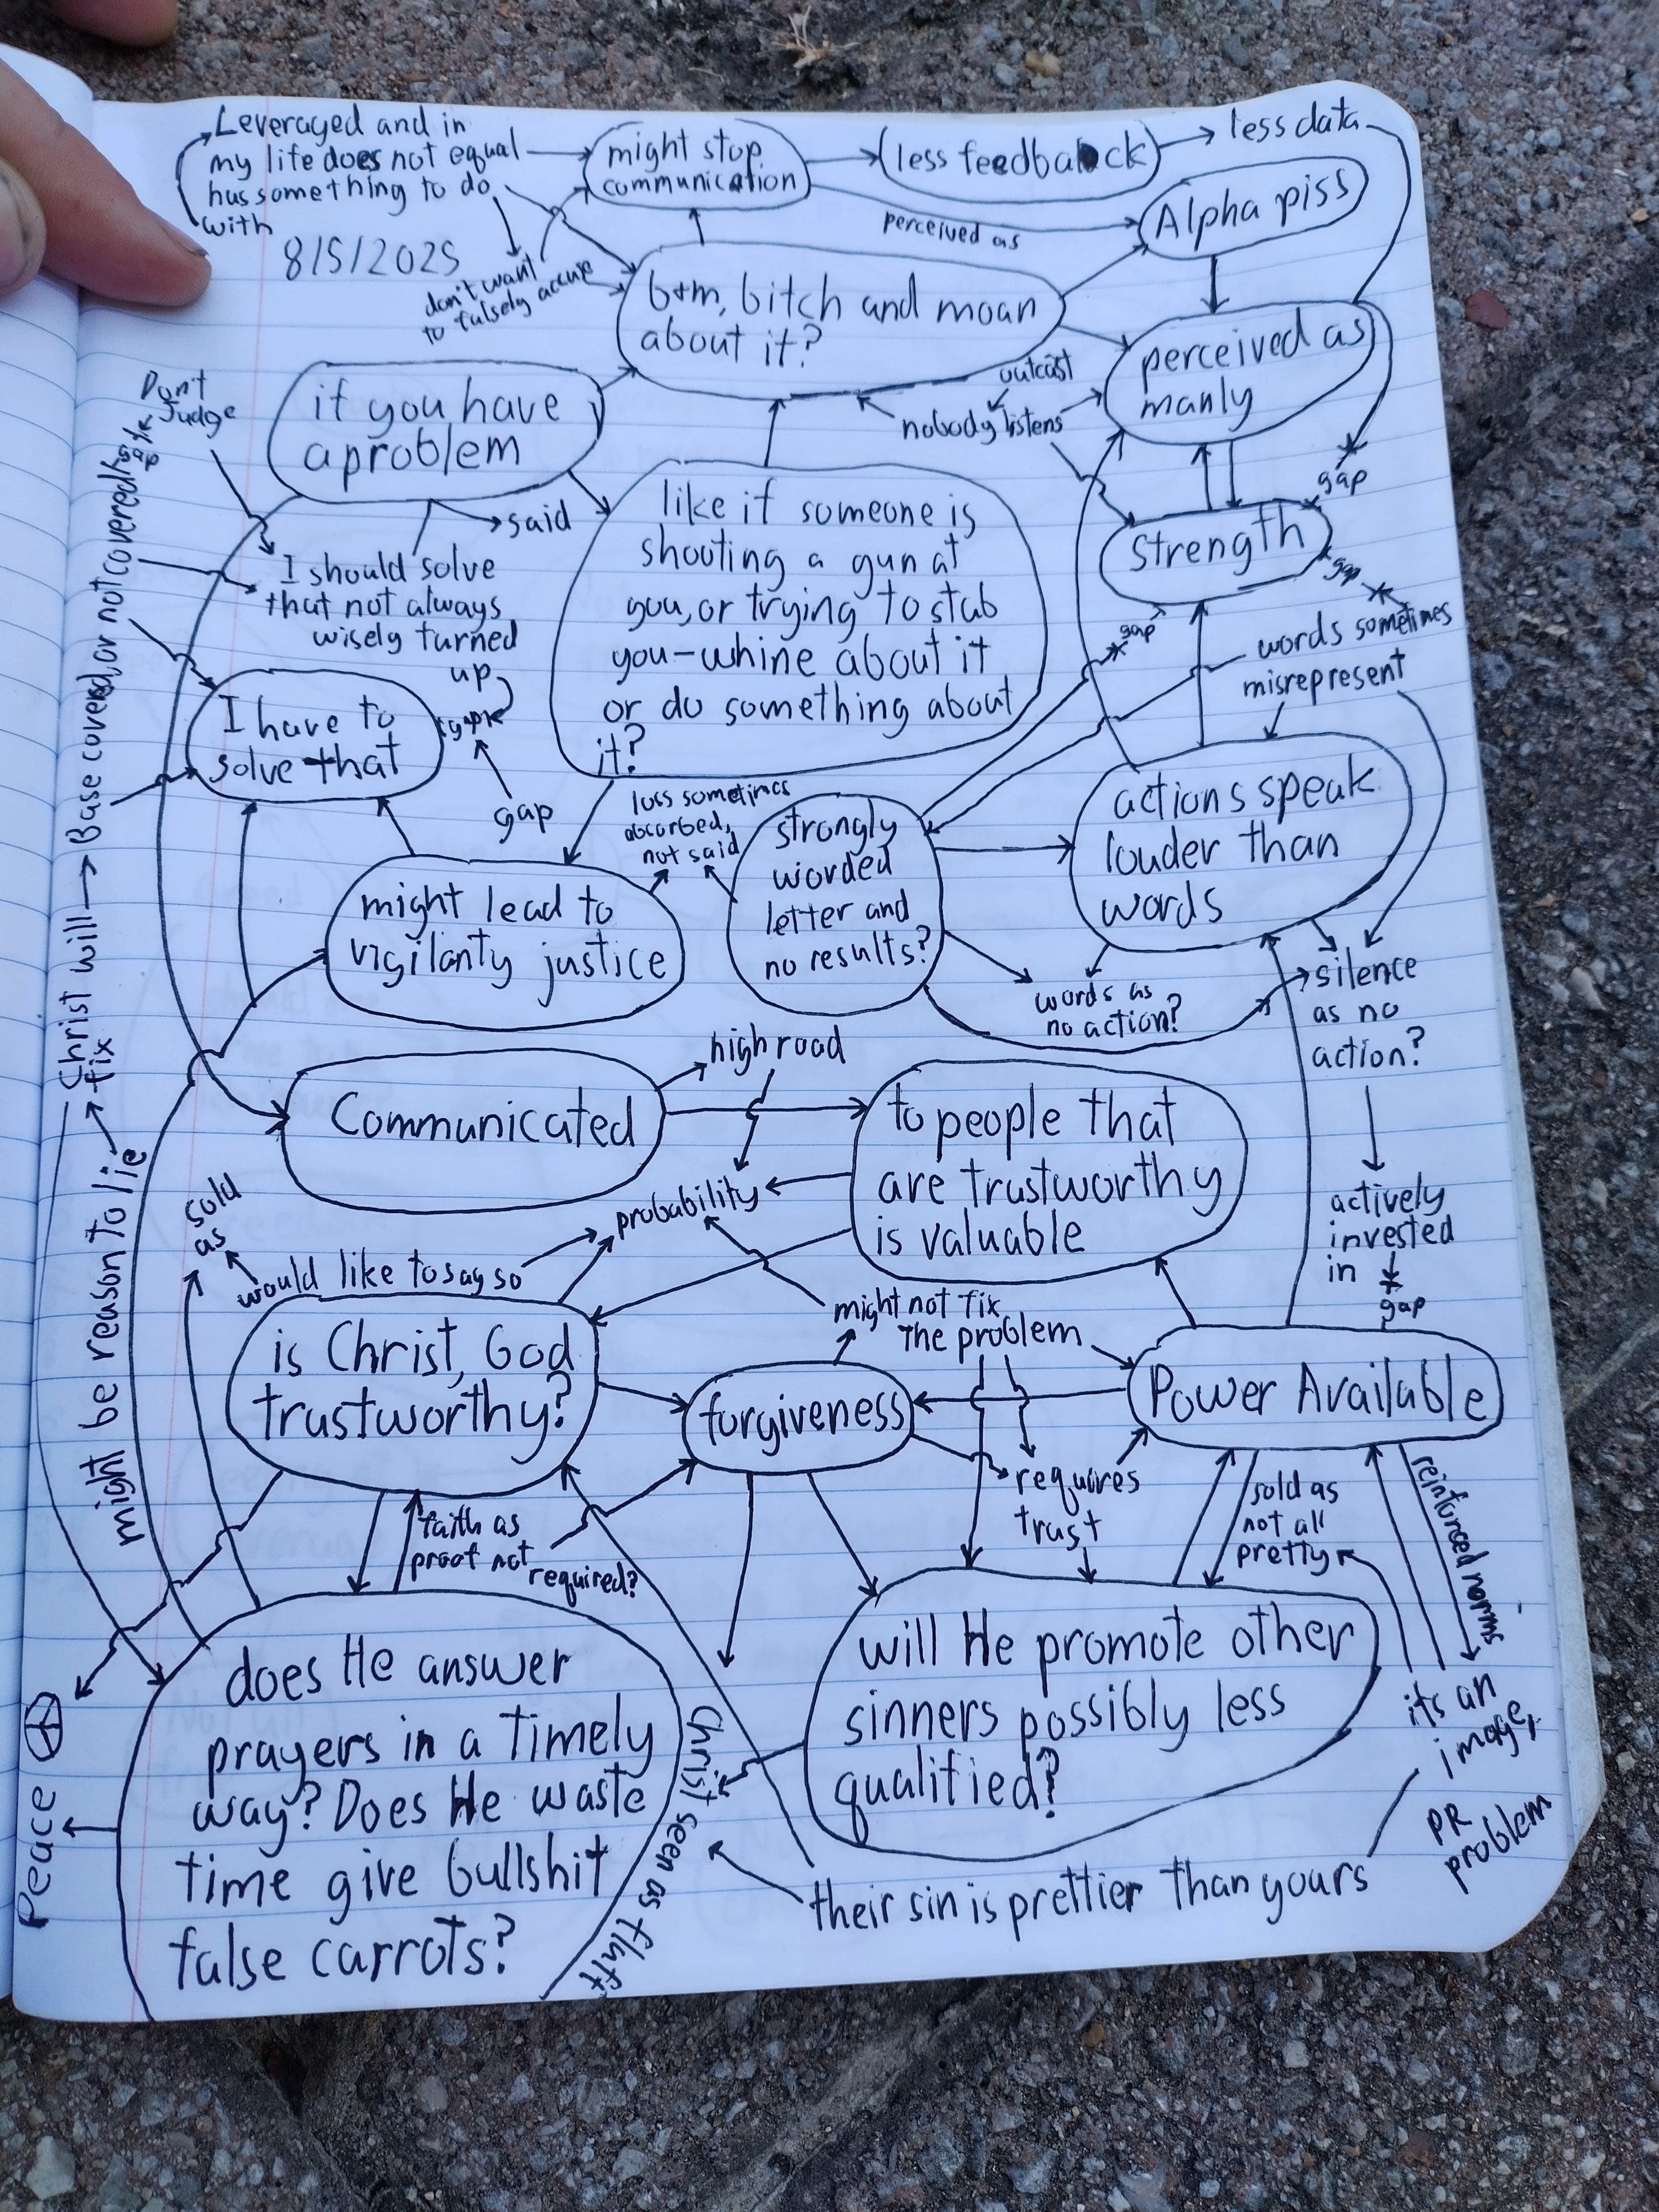 Leveraged and in
my life does not equal
has something to do
with
8/5/2025
might stop
communication
less feedback
less data
perceived as
Alpha piss
don't want
to falsely accuse
b+m, bitch and moan
about it?
perceived as
manly
outcast
nobody listens
gap
if you have
a problem
said
Don't
Judge
I should solve
that not always
wisely turned
up
gap
gap
like if someone is
shooting a gun at
you, or trying to stab
you-whine about it
or do something about
it?
Strength
gap
gap
words sometimes
misrepresent
I have to
solve that
loss sometimes
absorbed,
not said
strongly
worded
letter and
no results?
actions speak
louder than
words
might lead to
vigilanty justice
words as
no action?
silence
as no
action?
actively
invested
in
gap
Christ will
fix
Base covered, or not covered
gap
might be reason to lie
Communicated
high road
to people that
are trustworthy
is valuable
probability
sold
as
would like to say so
is Christ, God
trustworthy?
might not fix
the problem
forgiveness
Power Available
requires
trust
sold as
not all
pretty
reinforced norms
faith as
proof not
required?
does He answer
prayers in a timely
way? Does He waste
time give bullshit
false carrots?
Peace
Christ seen as fluff
will He promote other
sinners possibly less
qualified?
its an
image,
PR
problem
their sin is prettier than yours